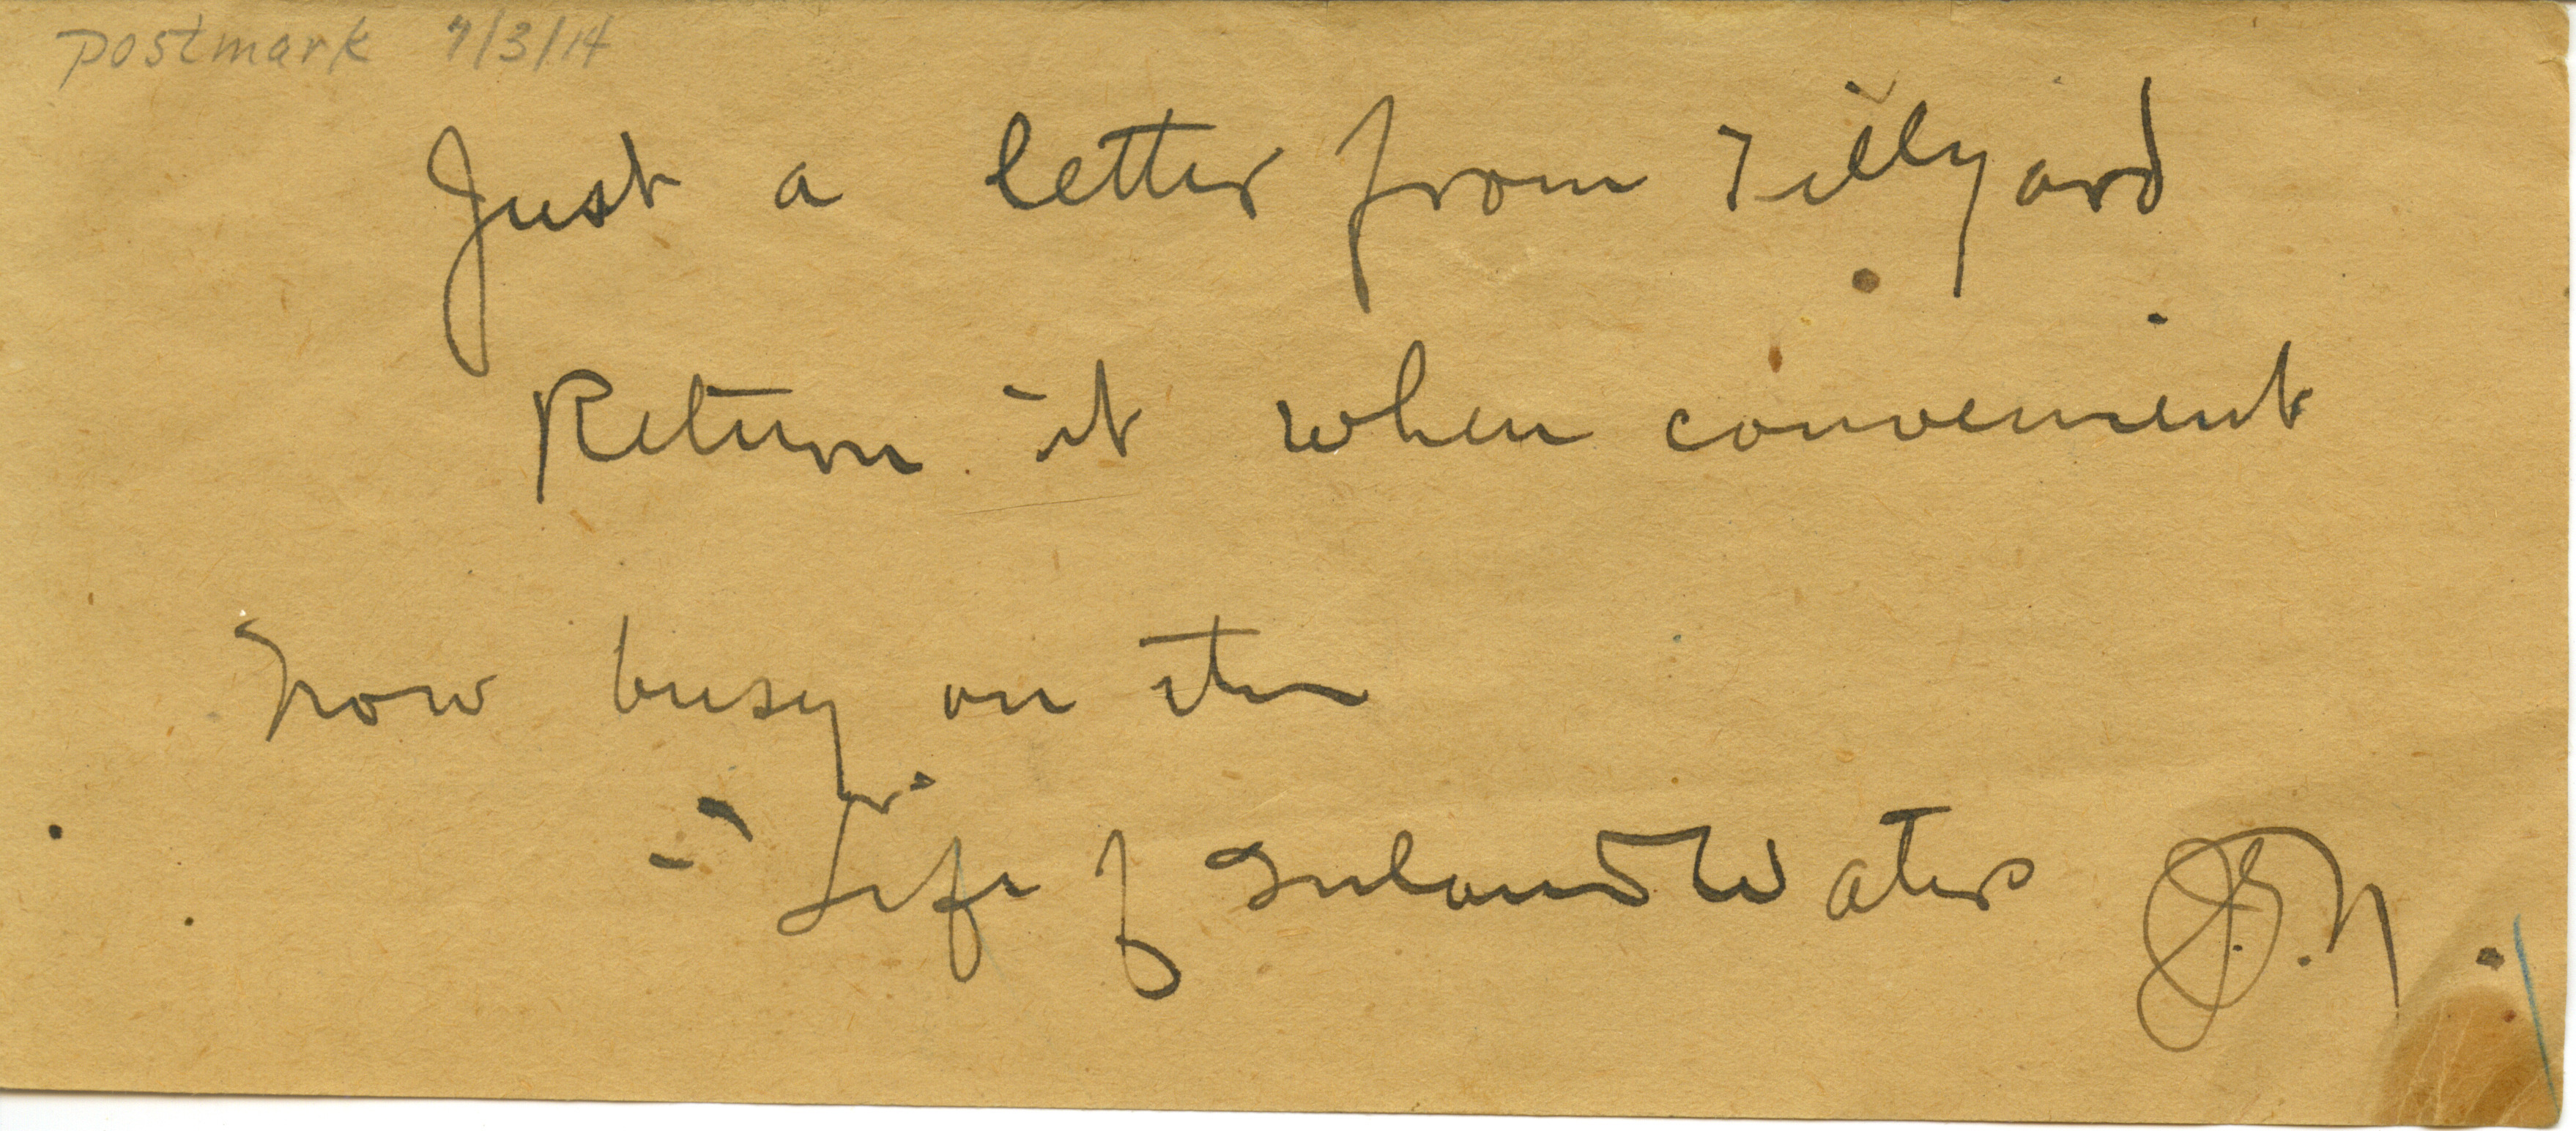 postmark 7/3/14
Just a letter from Tillyard
Return it when convenient
Now busy on the
"Life of Inland Waters J.G.N.